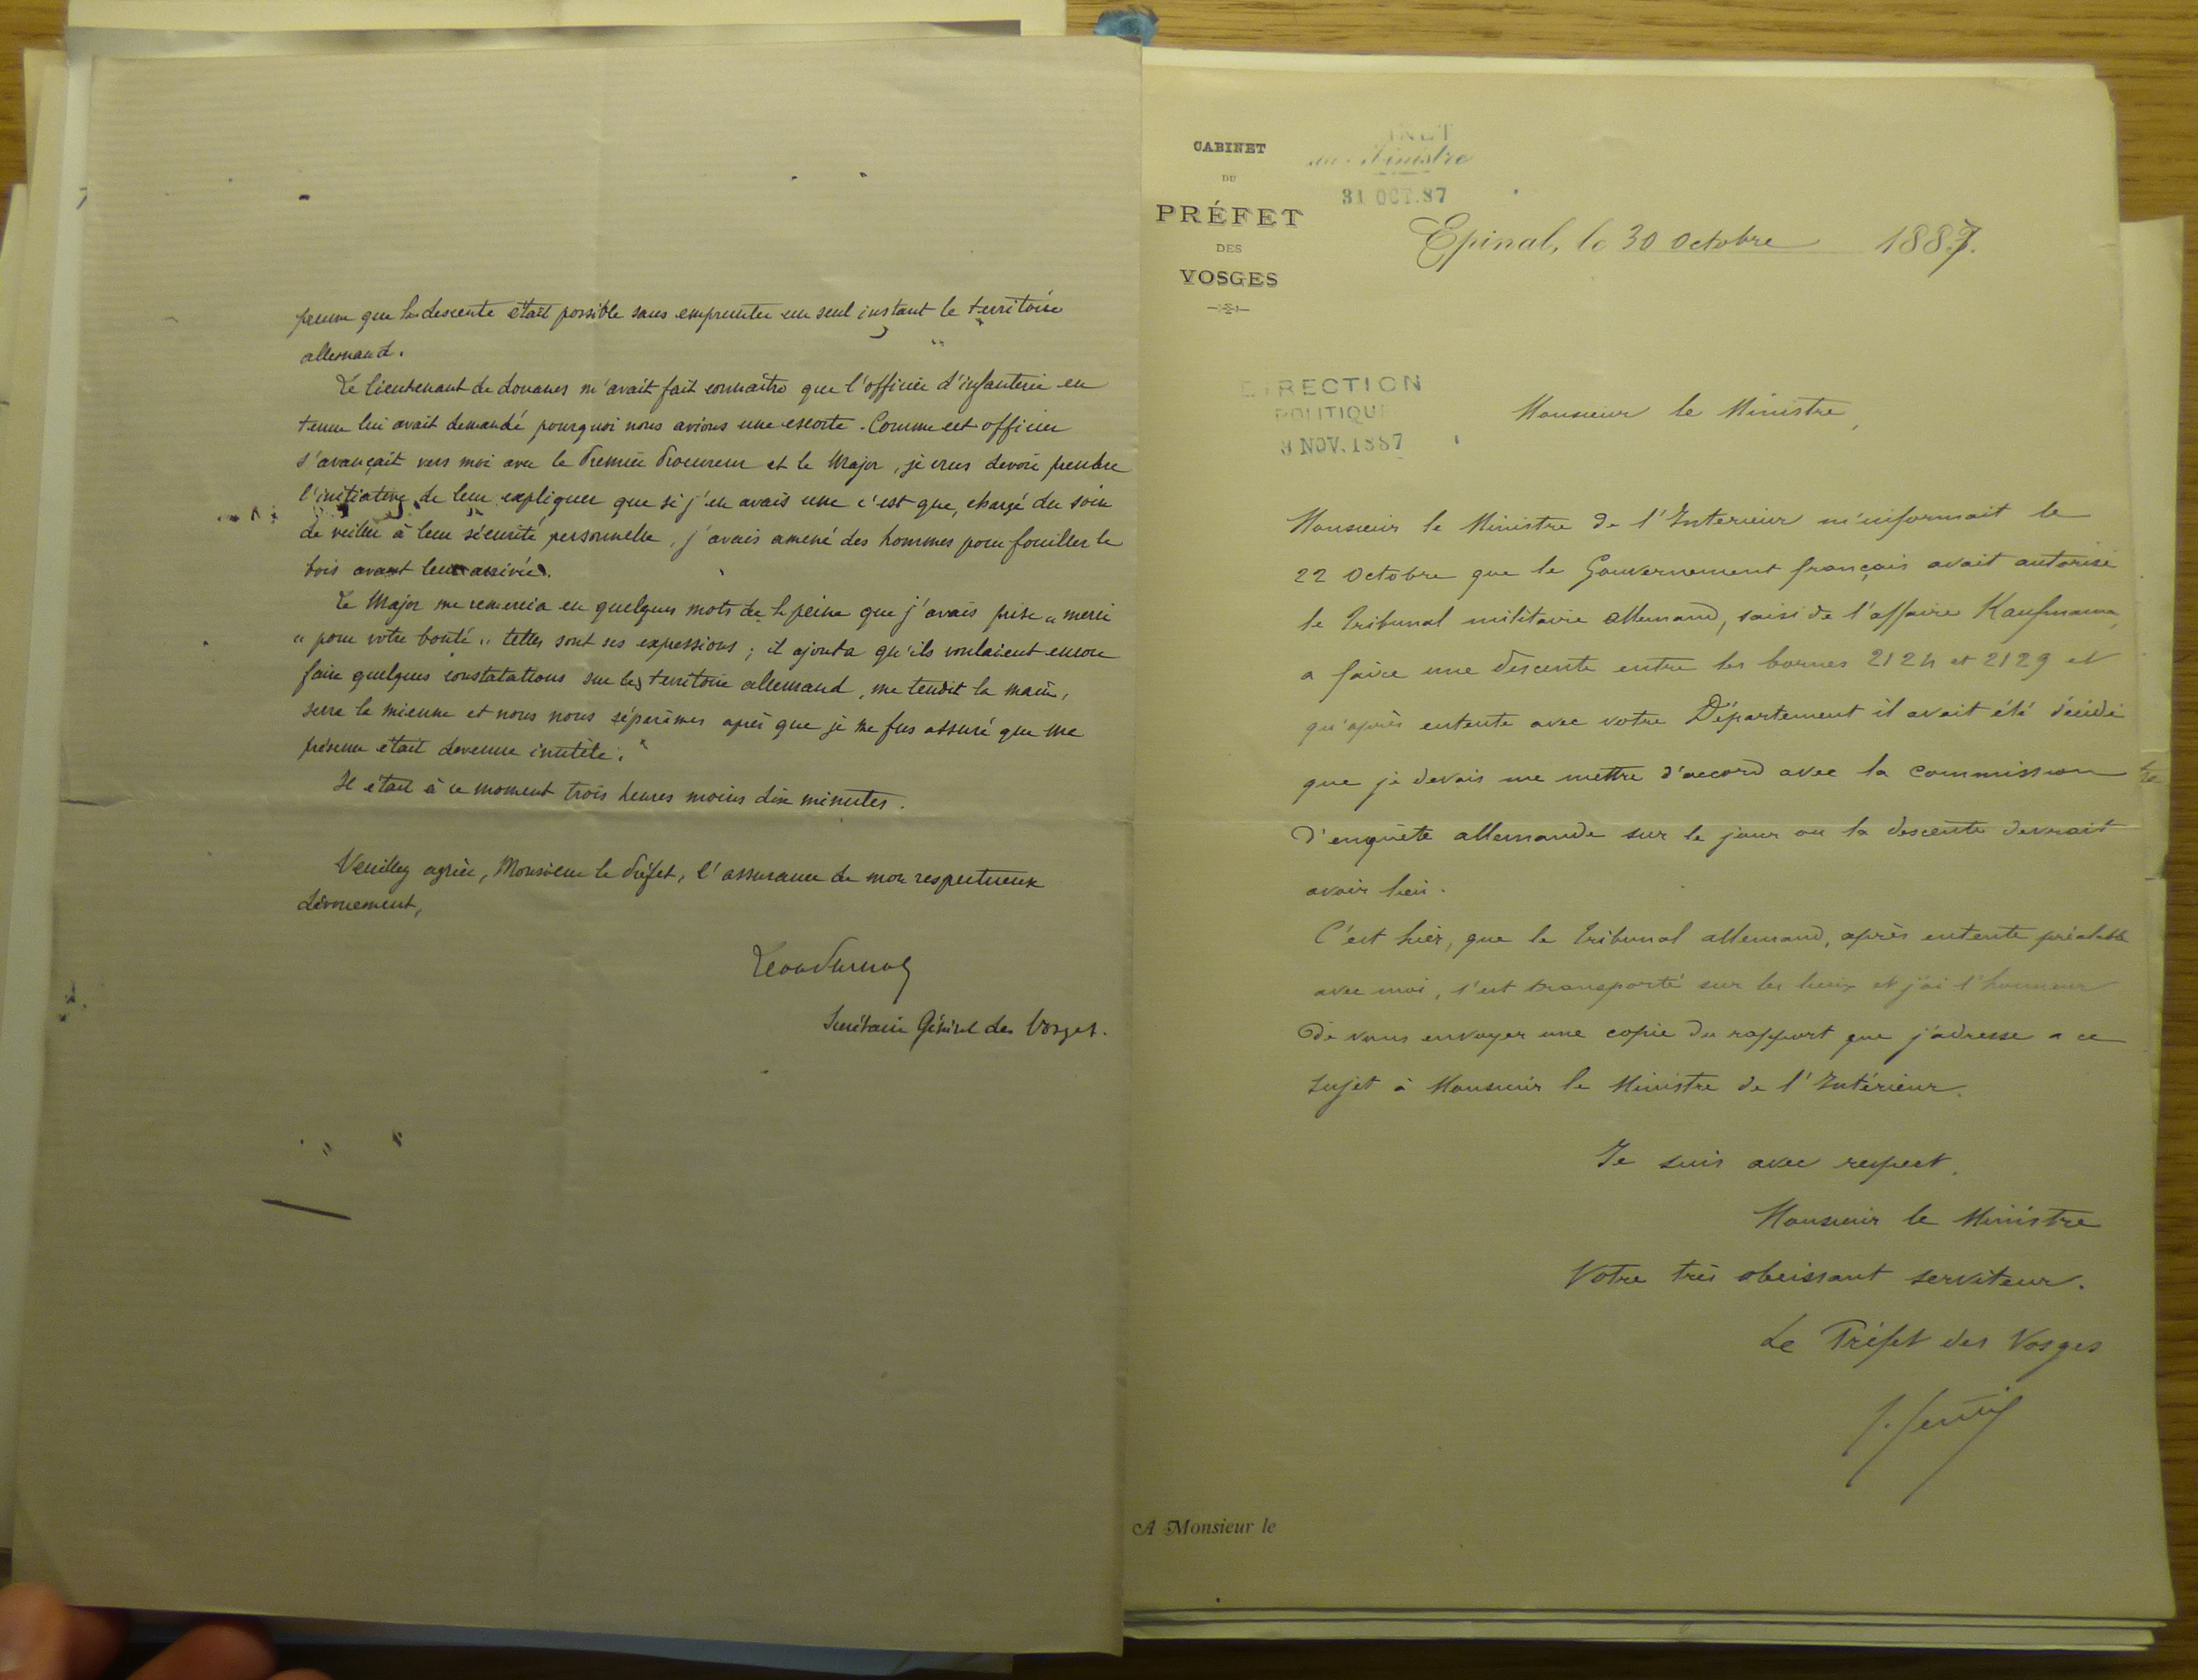 preuve que la descente était possible sans emprunter un seul instant le territoire
allemand.
Le lieutenant de douanes m'avait fait connaître que l'officier d'infanterie en
tenue lui avait demandé pourquoi nous avions une escorte. Comme cet officier
s'avançait vers moi avec le Premier Procureur et le Major, je crus devoir prendre
l'initiative de leur expliquer que si j'en avais une c'est que, chargé du soin
de veiller à leur sécurité personnelle, j'avais amené des hommes pour fouiller le
bois avant leur arrivée.
Le Major me remercia en quelques mots de la peine que j'avais prise "merci
" pour votre bonté " telles sont ses expressions ; il ajouta qu'ils voulaient encore
faire quelques constatations sur le territoire allemand, me tendit la main,
serra la mienne et nous nous séparâmes après que je me fus assuré que ma
présence était devenue inutile.
Il était à ce moment trois heures moins dix minutes.
Veuillez agréer, Monsieur le Préfet, l'assurance de mon respectueux
dévouement,
Secrétaire Général des Vosges.
CABINET
DU
PRÉFET
DES
VOSGES
Ministre
31 OCT. 87
Epinal, le 30 Octobre 1887.
DIRECTION
POLITIQUE
3 NOV. 1887
Monsieur le Ministre,
Monsieur le Ministre de l'Interieur m'informait le
22 Octobre que le Gouvernement français avait autorisé
le Tribunal militaire allemand, saisi de l'affaire Kaufmann,
a faire une descente entre les bornes 2124 et 2129 et
qu'après entente avec votre Département il avait été décidé
que je devais me mettre d'accord avec la Commission
d'enquête allemande sur le jour ou la descente devrait
avoir lieu.
C'est hier, que le Tribunal allemand, après entente préalable
avec moi, s'est transporté sur les lieux et j'ai l'honneur
de vous envoyer une copie du rapport que j'adresse a ce
sujet à Monsieur le Ministre de l'Intérieur.
Je suis avec respect,
Monsieur le Ministre
Votre très obeissant serviteur.
Le Préfet des Vosges
A Monsieur le